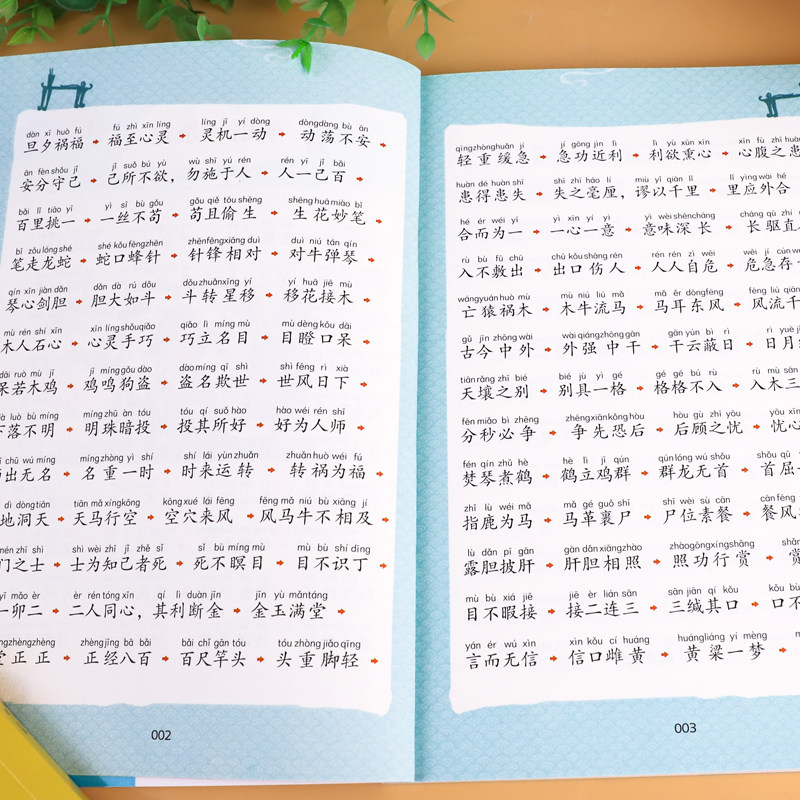 dàn xī huò fú fú zhì xīn líng líng jī yí dòng dòngdàng bù ān
旦夕祸福 福至心灵 灵机一动 动荡不安
ān fèn shǒu jǐ jǐ suǒ bú yù wù shī yú rén rén yī jǐ bǎi
安分守己 己所不欲，勿施于人 人一己百
bǎi lǐ tiāo yī yì sī bù gǒu gǒu qiě tōu shēng shēng huā miào bǐ
百里挑一 一丝不苟 苟且偷生 生花妙笔
bǐ zǒu lóng shé shé kǒu fēng zhēn zhēn fēng xiāng duì duì niú tán qín
笔走龙蛇 蛇口蜂针 针锋相对 对牛弹琴
qín xīn jiàn dǎn dǎn dà rú dǒu dǒu zhuǎn xīng yí yí huā jiē mù
琴心剑胆 胆大如斗 斗转星移 移花接木
mù rén shí xīn xīn líng shǒu qiǎo qiǎo lì míng mù mù dèng kǒu dāi
木人石心 心灵手巧 巧立名目 目瞪口呆
dāi ruò mù jī jī míng gǒu dào dào míng qī shì shì fēng rì xià
呆若木鸡 鸡鸣狗盗 盗名欺世 世风日下
luò bù míng míng zhū àn tóu tóu qí suǒ hào hào wéi rén shī
下落不明 明珠暗投 投其所好 好为人师
chū wú míng míng zhòng yì shí shí lái yùn zhuǎn zhuǎn huò wéi fú
师出无名 名重一时 时来运转 转祸为福
dì dòng tiān tiān mǎ xíng kōng kōng xué lái fēng fēng mǎ niú bù xiāng jí
地洞天 天马行空 空穴来风 风马牛不相及
mén zhī shì shì wèi zhī jǐ zhě sǐ sǐ bù míng mù mù bù shí dīng
门之士 士为知己者死 死不瞑目 目不识丁
yī mǎo èr èr rén tóng xīn qí lì duàn jīn jīn yù mǎn táng
一卯二 二人同心，其利断金 金玉满堂
zhèng zhèng zhèng jīng bā bǎi bǎi chǐ gān tóu tóu zhòng jiǎo qīng
堂正正 正经八百 百尺竿头 头重脚轻
002
qīng zhòng huǎn jí jí gōng jìn lì lì yù xūn xīn xīn fù zhī huàn
轻重缓急 急功近利 利欲熏心 心腹之患
huàn dé huàn shī shī zhī háo lí miù yǐ qiān lǐ lǐ yìng wài hé
患得患失 失之毫厘，谬以千里 里应外合
hé ér wéi yī yì xīn yí yì yì wèi shēn cháng cháng qū zhí
合而为一 一心一意 意味深长 长驱直
rù bù fū chū chū kǒu shāng rén rén rén zì wēi wēi jí cún
入不敷出 出口伤人 人人自危 危急存
wáng yuán huò mù mù niú liú mǎ mǎ ěr dōng fēng fēng liú
亡猿祸木 木牛流马 马耳东风 风流千
gǔ jīn zhōng wài wài qiáng zhōng gān gān yún bì rì rì yuè
古今中外 外强中干 干云蔽日 日月
tiān rǎng zhī bié bié jù yì gé gé gé bú rù rù mù sān
天壤之别 别具一格 格格不入 入木三
fēn miǎo bì zhēng zhēng xiān kǒng hòu hòu gù zhī yōu yōu xīn
分秒必争 争先恐后 后顾之忧 忧心
fén qín zhǔ hè hè lì jī qún qún lóng wú shǒu shǒu qū
焚琴煮鹤 鹤立鸡群 群龙无首 首屈
zhǐ lù wéi mǎ mǎ gé guǒ shī shī wèi sù cān cān fēng
指鹿为马 马革裹尸 尸位素餐 餐风
lù dǎn pī gān gān dǎn xiāng zhào zhào gōng xíng shǎng shǎng
露胆披肝 肝胆相照 照功行赏 赏
mù bù xiá jiē jiē èr lián sān sān jiān qí kǒu kǒu
目不暇接 接二连三 三缄其口 口
yán ér wú xìn xìn kǒu cí huáng huáng liáng yí mèng
言而无信 信口雌黄 黄粱一梦
003